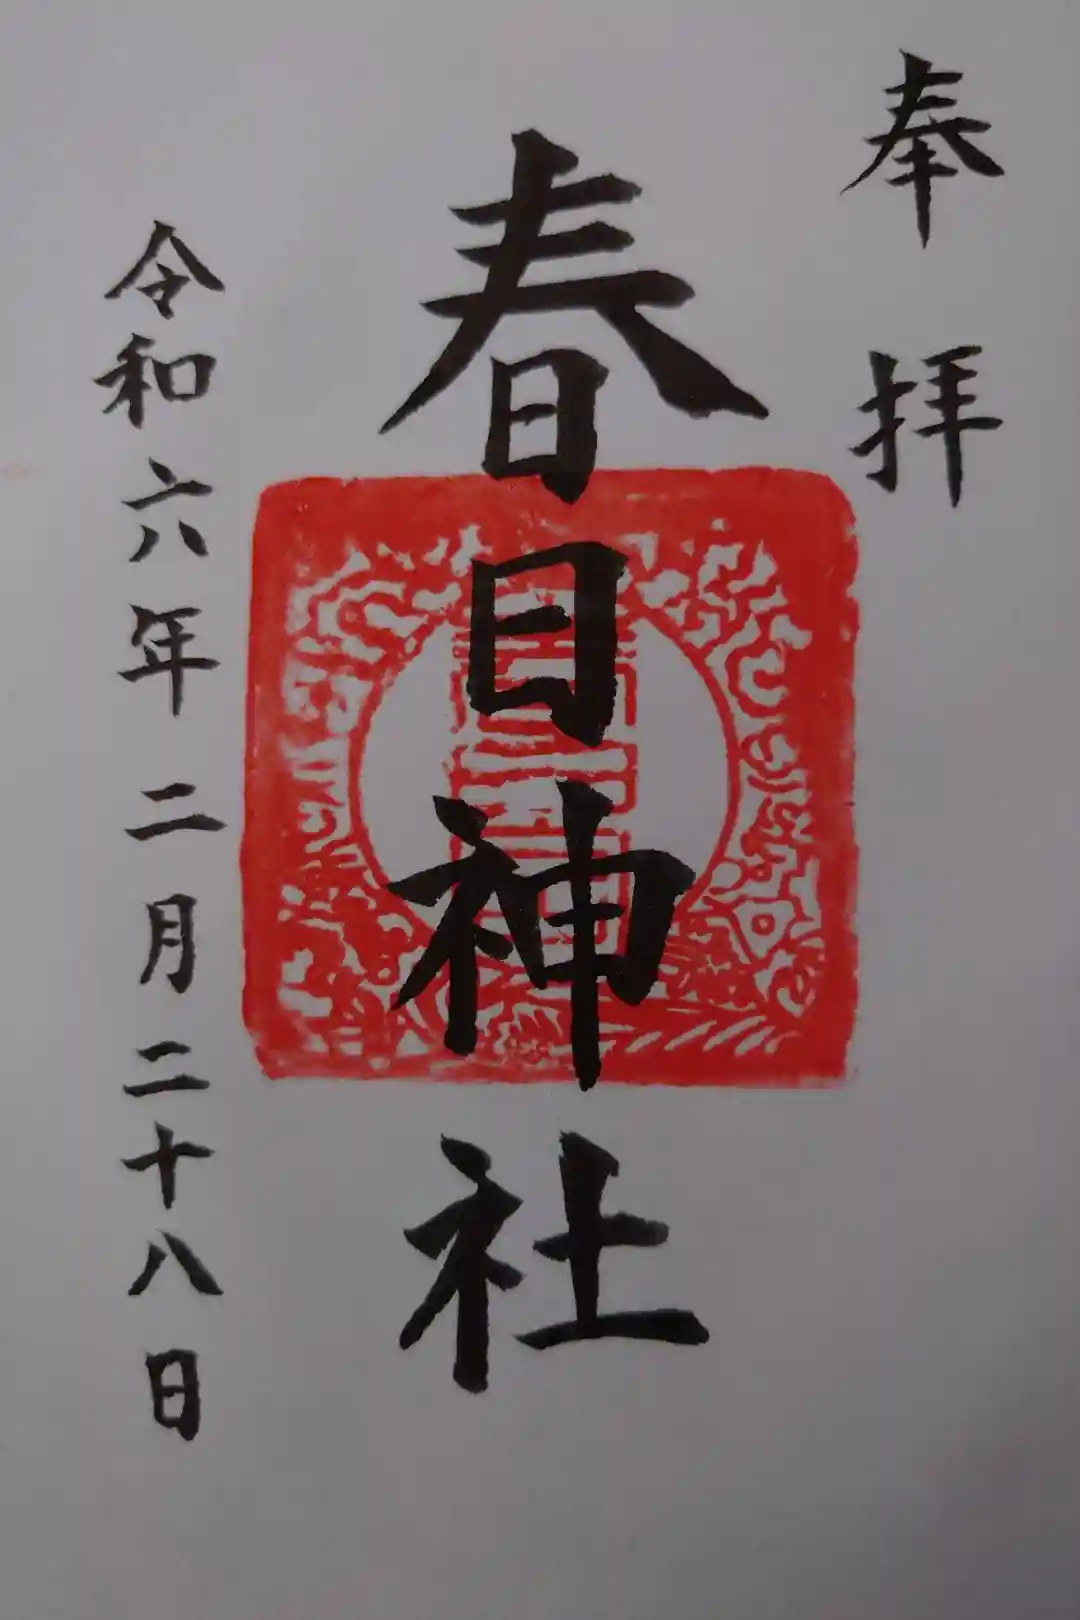 奉拝
春日神社
令和六年二月二十八日